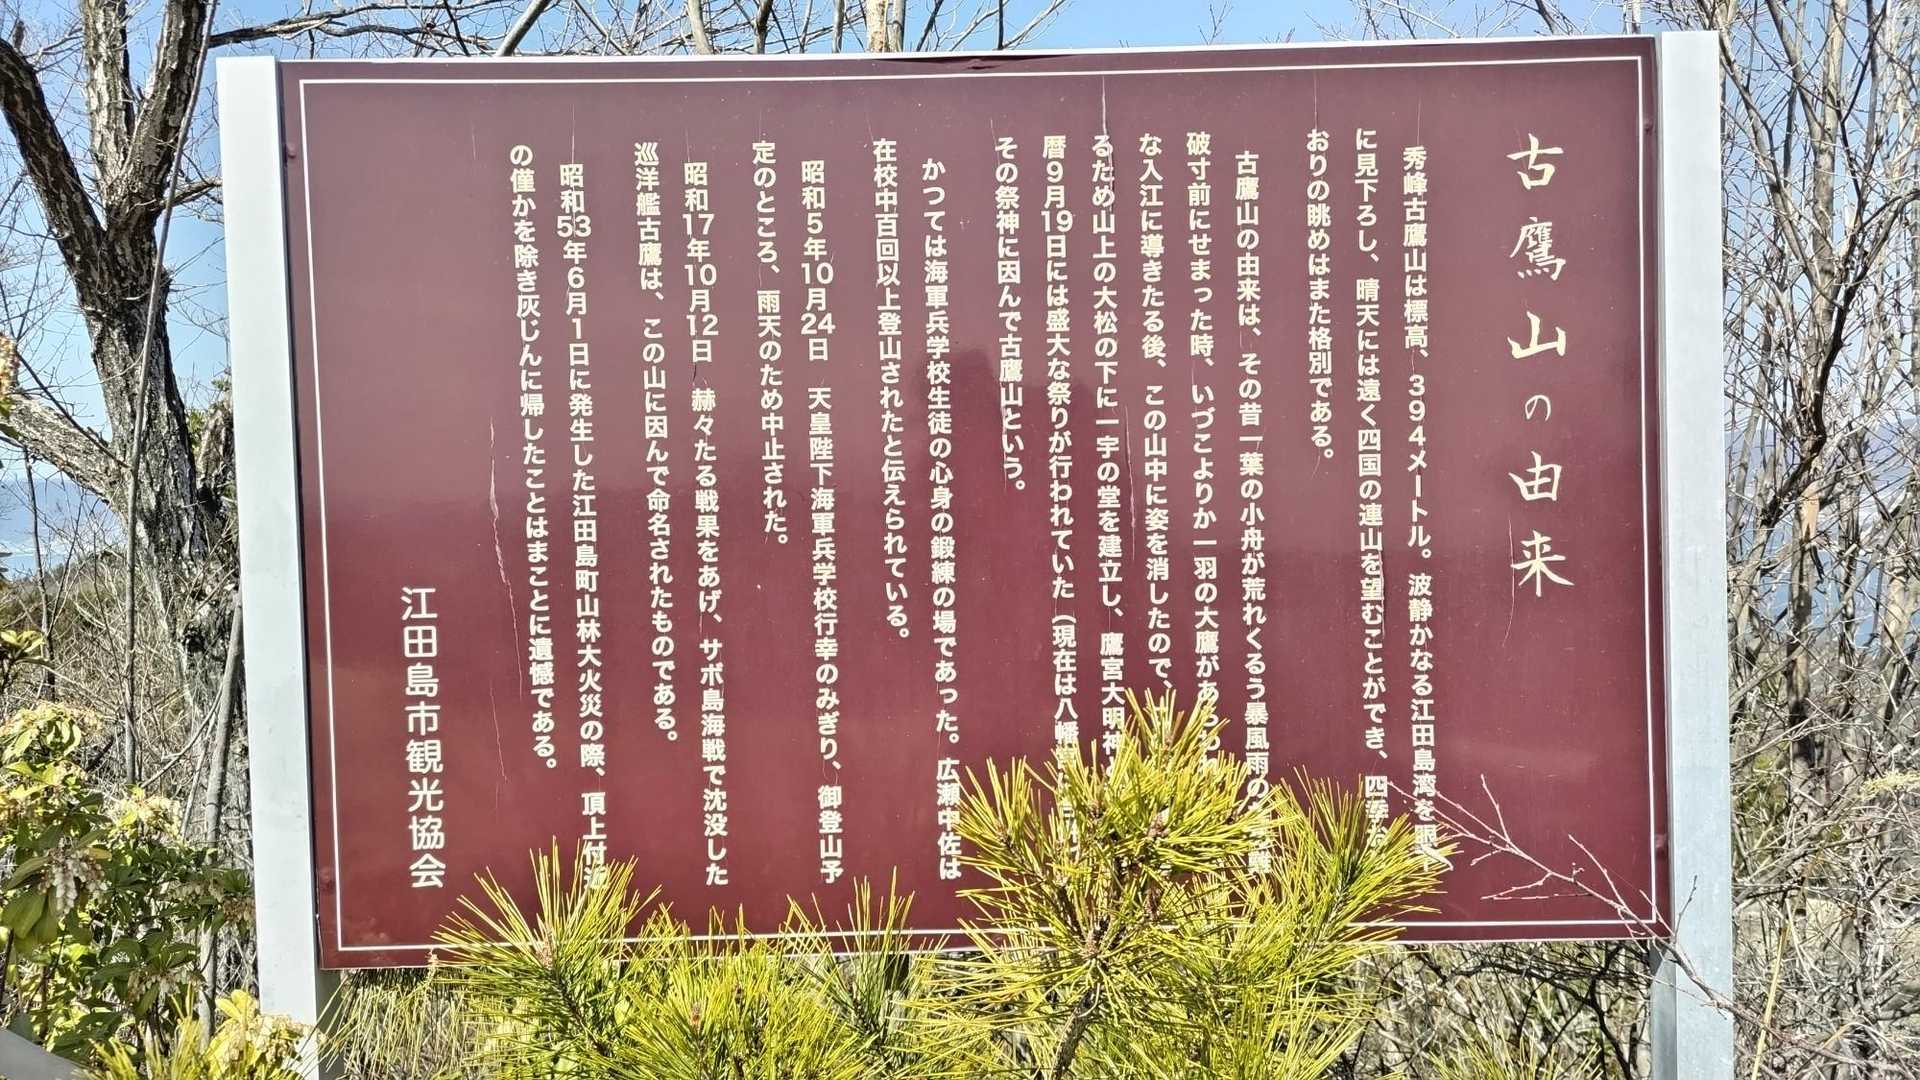 古鷹山の由来
秀峰古鷹山は標高、394メートル。波静かなる江田島湾を眼下
に見下ろし、晴天には遠く四国の連山を望むことができ、四季な
おりの眺めはまた格別である。
古鷹山の由来は、その昔一葉の小舟が荒れくるう暴風雨の
破寸前にせまった時、いづこよりか一羽の大鷹があらわれ
な入江に導きたる後、この山中に姿を消したので、
るため山上の大松の下に一宇の堂を建立し、鷹宮大明神
暦9月19日には盛大な祭りが行われていた(現在は八幡
その祭神に因んで古鷹山という。
かつては海軍兵学校生徒の心身の鍛練の場であった。広瀬中佐は
在校中百回以上登山されたと伝えられている。
昭和5年10月24日 天皇陛下海軍兵学校行幸のみぎり、御登山予
定のところ、雨天のため中止された。
昭和17年10月12日 赫々たる戦果をあげ、サボ島海戦で沈没した
巡洋艦古鷹は、この山に因んで命名されたものである。
昭和53年6月1日に発生した江田島町山林大火災の際、頂上付近
の僅かを除き灰じんに帰したことはまことに遺憾である。
江田島市観光協会